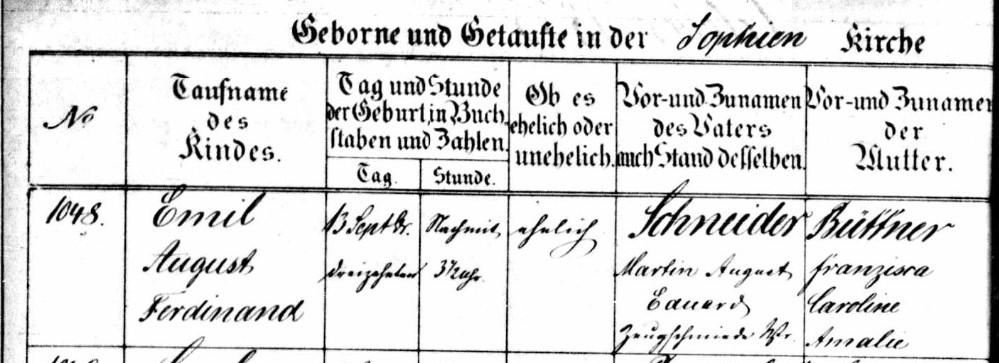 Geborne und Getaufte in der Sophien Kirche
No
Taufname
des
Kindes.
Tag und Stunde
der Geburt, in Buch-
staben und Zahlen.
Tag.
Stunde.
Ob es
ehelich oder
unehelich.
Vor- und Zunamen
des Vaters
auch Stand desselben.
Vor- und Zunamen
der
Mutter.
1048.
Emil
August
Ferdinand
13 Sept
dreizehnten
Nachmit
3½ Uhr
ehelich
Schneider
Martin August
Eduard
Zeugschmiede
Büttner
Franzisca
Caroline
Amalie